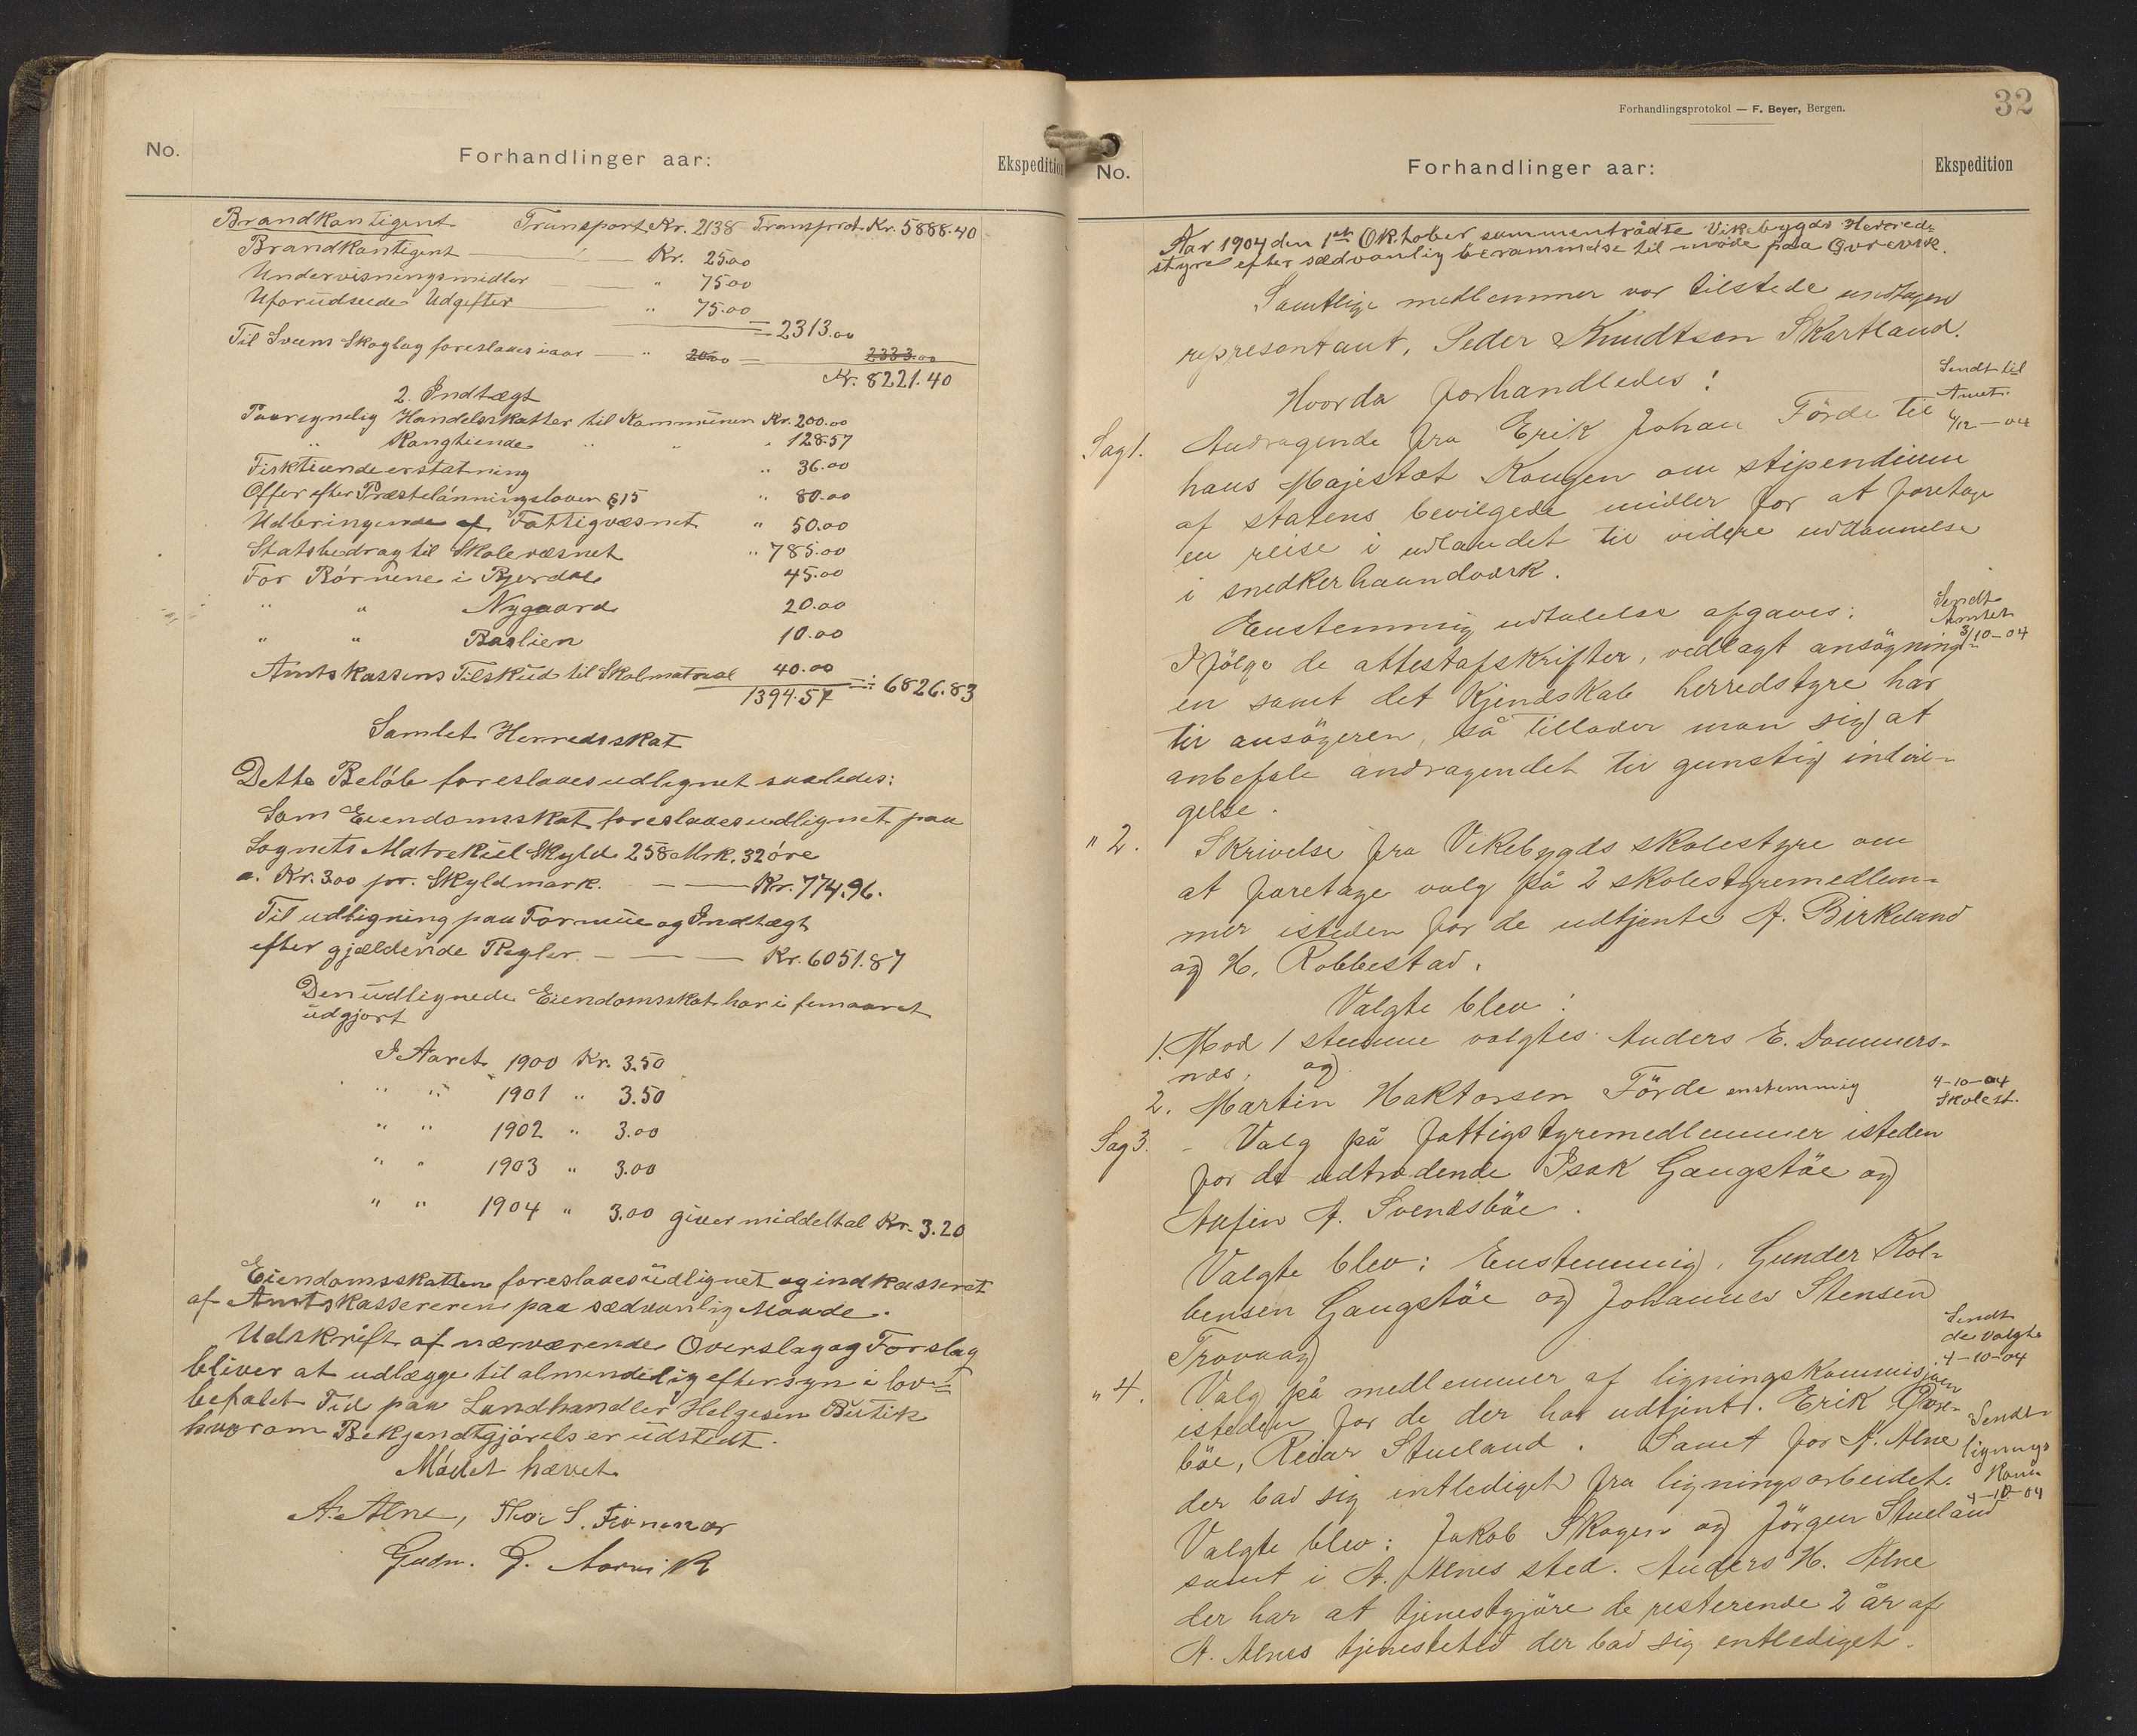 No.
Forhandlinger aar:
Ekspedition
Brandkontigent Transport Kr. 2138 Transport Kr. 5888.40
Brandkontigent Kr. 25.00
Undervisningsmidler " 75.00
Uforudseede Udgifter " 75.00
= 2313.00
Til Sveens Skoglag foreslaaes iaar " 20.00 = 2333.00
Kr. 8221.40
2. Indtægt
Paaregnelig Handelsskatter til Kommunen Kr. 200.00
" Kongtiende " " " 128.57
Fisktiendeerstatning " 36.00
Offer efter Præstelönningsloven § 15 " 80.00
Udbringende af Fattigvæsnet " 50.00
Statsbedrag til Skolevæsnet " 785.00
For Börnene i Bjerdal 45.00
" " Nygaard 20.00
" " Baslien 10.00
Amtskassens Tilskud til Skolmatrial 40.00
1394.57 = : 6826.83
Samlet Herredsskat
Dette Belöb foreslaaes udlignet saaledes:
Som Eiendomsskat foreslaaes udlignet paa
Sognets Matrekul Skyld 258 Mrk. 32 öre
a. Kr. 3.00 pr. Skyldmark. Kr. 774.96.
Til udligning paa Formue og Indtægt
efter gjældende Regler Kr. 6051.87
Den udlignede Eiendomsskat har i femaaret
udgjort
I Aaret 1900 Kr. 3.50
" " 1901 " 3.50
" " 1902 " 3.00
" " 1903 " 3.00
" " 1904 " 3.00 giver middeltal Kr. 3.20
Eiendomsskatten foreslaaes udlignet og indkasseret
af Amtskassereren paa sædvanlig Maade.
Udskrift af nærværende Overslag og Forslag
bliver at udlægge til almindelig eftersyn i lov-
befalet Tid paa Landhandler Helgesen Butik
hvorom Bekjendtgjörels er udstedt.
Mödet hævet
A. Alne, Thor S.
Gudm. G. Aarvik
Forhandlingsprotokol — F. Beyer, Bergen.
32
No.
Forhandlinger aar:
Ekspedition
Aar 1904 den 1ste Oktober sammentrådte Vikebygds Herreds-
styre efter sædvanlig berammelse til möde paa Övrevik.
Samtlige medlemmer var tilstede undtagen
representant, Peder Knudtsen Skartland.
Hvorda forhandledes:
Sendt til
Amtet
6/12 – 04
Sag 1. Andragende fra Erik Johan Förde til
hans Majestæt Kongen om stipendium
af statens bevilgede midler for at foretage
en reise i udlandet til videre uddannelse
i snedkerhaandværk.
Enstemmig udtalelse afgaves:
Sendt
Amtet
3/10 – 04
I fölge de attestafskrifter, vedlagt ansögning-
en samt det kjendskab herredstyre har
til ansögeren, så tillader man sig at
anbefale andragendet til gunstig indvil-
gelse.
" 2. Skrivelse fra Vikebygds skolestyre om
at foretage valg på 2 skolestyremedlem-
mer isteden for de udtjente A. Birkeland
og H. Robbestad.
Valgte blev:
1. Mod 1 stemme valgtes Anders E. Dommers-
næs, og
2. Martin Haktorsen Förde enstemmig
4–10–04
Skolest.
Sag 3. Valg på fattigstyremedlemmer isteden
for de udtrædende Isak Gangstöe og
Anfin A. Svendsböe.
Valgte blev: Enstemmig, Gunder Kol-
bensen Gangstöe og Johannes Stensen
Trovaag
Sendt
de valgte
4–10–04
" 4. Valg på medlemmer af ligningskommisjoen
isteden for de der har udtjent. Erik
böe, Reiar Stueland. Samt for A. Alne
der bad sig entlediget fra ligningsarbeidet.
Sendt
lignings
Kom.
4–10–04
Valgte blev: Jakob Skogen og Jörgen Stueland
samt i A. Alnes sted. Anders H. Alne
der har at tjenestgjöre de resterende 2 år af
A. Alnes tjenestetid der bad sig entlediget.